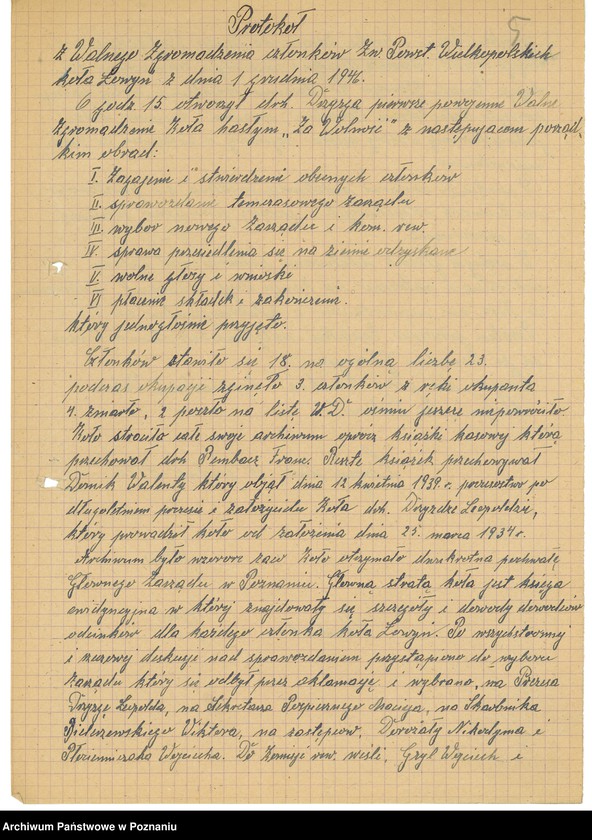 5
Protokoł
z Walnego Zgromadzenia członków Zw. Powst. Wielkopolskich
koła Lowyń z dnia 1 grudnia 1946.
O godz 15. otworzył drh. Dryzga pierwsze powojenne Walne
Zgromadzenie Koła hasłym „Za Wolność" z następujacem porząd-
kim obrad:
I. Zagajenie i stwierdzenie obecnych członków
II. sprawozdanie temczasowego zarządu
III. wybor nowego Zarządu i kom. rew.
IV. sprawa przesiedlenia się na ziemie odzyskane
V. wolne głosy i wnioski
VI płacenie składek i zakończenie.
który jednogłośnie przyjęto.
Członków stawiło się 18. na ogólną liczbę 23.
podczas okupacji zginęło 3. członków z ręki okupanta
4. zmarło, 2 poszło na listę V.D. ośmiu jeszcze niepowróciło
Koło straciło całe swoje archiwum oprócz książki kasowej którą
przechował drh Pembacz Franc. Resztę książek przechowywał
Domek Walenty który objął dnia 12 kwietnia 1939 r. prezesostwo po
długoletniem prezesie i założycielu Koła drh. Dryzdze Leopoldzie,
który prowadził koło od założenia dnia 25 marca 1934 r.
Archiwum było wzorowe zaco Koło otrzymało dwukrotną pochwałę
Głownego Zarządu w Poznaniu. Głowną stratą koła jest księga
ewidyncyjna w której znajdowały się szczegóły i dowody dowodców
odcinków dla każdego członka koła Lowyń. Po wszechstronnej
i rzeczowej deskusji nad sprawozdaniem przystąpiono do wyboru
Zarządu który się odbył przez aklamację i wybrano, na Prezesa
Dryzgę Leopolda, na Sekretarza Pozpiernego Macieja, na Skarbnika
Bieluszewskiego Viktora, na zastępców. Dorożały Nikodyma i
Płocienniczaka Wojciecha. Do Komisji rew. weśli, Gryl Wojciech i
Archiwum Państwowe w Poznaniu